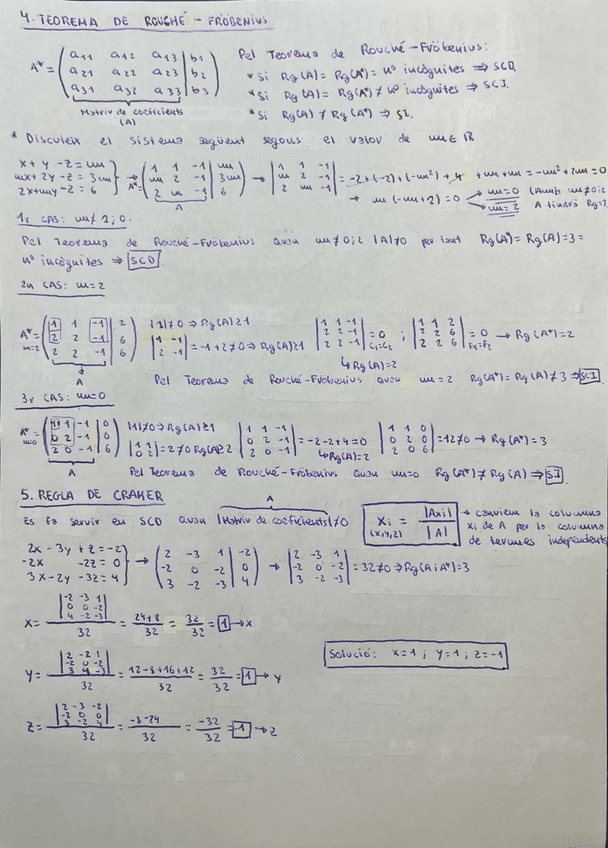 4. TEOREMA DE ROUCHÉ - FRÖBENIUS
A* = ( a11 a12 a13 | b1
a21 a22 a23 | b2
a31 a32 a33 | b3 )
Matriu de coeficients
(A)
Pel Teorema de Rouché-Fröbenius:
* Si Rg(A) = Rg(A*) = nº incògnites ⇒ SCD.
* Si Rg(A) = Rg(A*) ≠ nº incògnites ⇒ SCI.
* Si Rg(A) ≠ Rg(A*) ⇒ SI.
* Discuteix el sistema següent segons el valor de m ∈ ℝ
x + y - z = m
mx + 2y - z = 3m
2x + my - z = 6
} → A* = ( 1 1 -1 | m
m 2 -1 | 3m
2 m -1 | 6 )
A
→ | 1 1 -1
m 2 -1
2 m -1 | = -2 + (-2) + (-m²) + 4 + m + m = -m² + 2m = 0
→ m(-m+2) = 0 → m=0 (Amb m≠0;2
→ m=2 A tindrà Rg=3
1r CAS: m≠ 2; 0.
Pel Teorema de Rouché-Fröbenius quan m≠0;2 |A|≠0 per tant Rg(A*) = Rg(A) = 3 =
nº incògnites ⇒ SCD
2n CAS: m=2
A* m=2 = ( 1 1 -1 | 2
2 2 -1 | 6
2 2 -1 | 6 )
A
|1|≠0 ⇒ Rg(A)≥1
| 1 -1
2 -1 | = -1+2≠0 ⇒ Rg(A)≥1
| 1 1 -1
2 2 -1
2 2 -1 | = 0 C1=C2
↳ Rg(A)=2
; | 1 1 2
2 2 6
2 2 6 | = 0 F1=F2 → Rg(A*)=2
Pel Teorema de Rouché-Fröbenius quan m=2 Rg(A*) = Rg(A) ≠ 3 ⇒ SCI
3r CAS: m=0
A* m=0 = ( 1 1 -1 | 0
0 2 -1 | 0
2 0 -1 | 6 )
A
|1|≠0 ⇒ Rg(A)≥1
| 1 1
0 2 | = 2≠0 Rg(A)≥2
| 1 1 -1
0 2 -1
2 0 -1 | = -2-2+4=0
↳ Rg(A)=2
| 1 1 0
0 2 0
2 0 6 | = 12≠0 → Rg(A*)=3
Pel Teorema de Rouché-Fröbenius quan m=0 Rg(A*) ≠ Rg(A) ⇒ SI
5. REGLA DE CRAMER
A
Es fa servir en SCD quan |Matriu de coeficients|≠0
Xi = |Axi| / |A|
(x,y,z)
→ canviem la columna
xi de A per la columna
de termes independents
2x - 3y + z = -2
-2x -2z = 0
3x - 2y - 3z = 4
} → ( 2 -3 1 | -2
-2 0 -2 | 0
3 -2 -3 | 4 )
→ | 2 -3 1
-2 0 -2
3 -2 -3 | = 32≠0 ⇒ Rg(A i A*)=3
x = | -2 -3 1
0 0 -2
4 -2 -3 | / 32 = 24+8 / 32 = 32 / 32 = 1 → x
y = | 2 -2 1
-2 0 -2
3 4 -3 | / 32 = 12-8+16+12 / 32 = 32 / 32 = 1 → y
Solució: x=1 ; y=1 ; z=-1
z = | 2 -3 -2
-2 0 0
3 -2 4 | / 32 = -8-24 / 32 = -32 / 32 = -1 → z